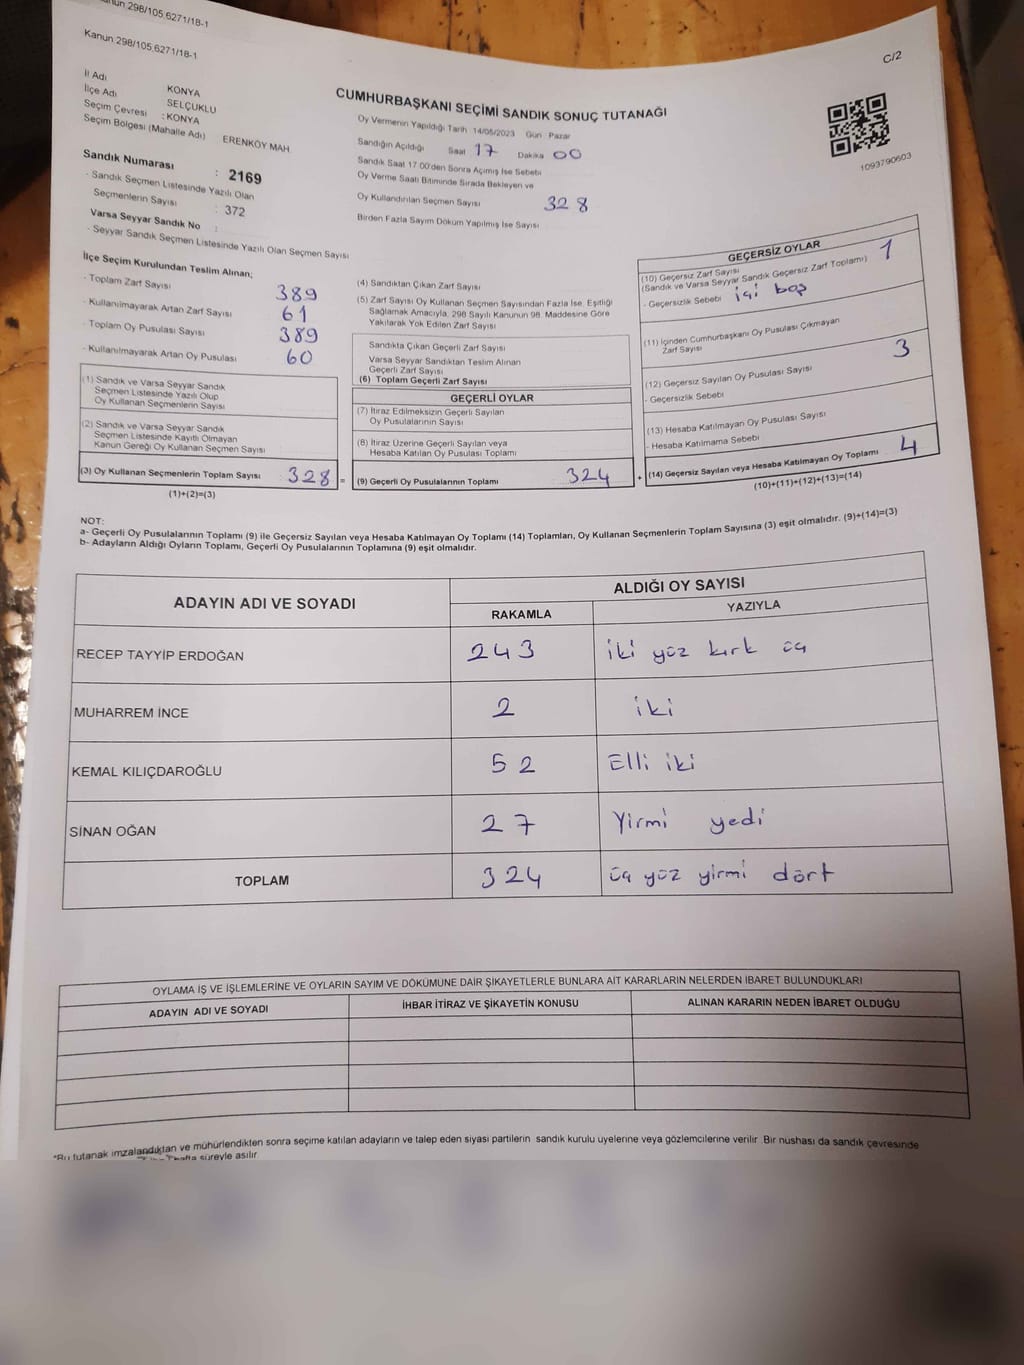 Kanun 298/105,6271/18-1
Kanun 298/105,6271/18-1
C/2
İl Adı KONYA
İlçe Adı SELÇUKLU
Seçim Çevresi : KONYA
Seçim Bölgesi (Mahalle Adı) ERENKÖY MAH
CUMHURBAŞKANI SEÇİMİ SANDIK SONUÇ TUTANAĞI
Oy Vermenin Yapıldığı Tarih 14/05/2023 Gün Pazar
Sandığın Açıldığı Saat 17 Dakika 00
Sandık Saat 17.00'den Sonra Açımış İse Sebebi
Oy Verme Saati Bitiminde Sırada Bekleyen ve
Oy Kullandırılan Seçmen Sayısı 328
Birden Fazla Sayım Döküm Yapılmış İse Sayısı
1093790603
Sandık Numarası : 2169
- Sandık Seçmen Listesinde Yazılı Olan
Seçmenlerin Sayısı : 372
Varsa Seyyar Sandık No :
- Seyyar Sandık Seçmen Listesinde Yazılı Olan Seçmen Sayısı
İlçe Seçim Kurulundan Teslim Alınan;
- Toplam Zarf Sayısı 389
- Kullanılmayarak Artan Zarf Sayısı 61
- Toplam Oy Pusulası Sayısı 389
- Kullanılmayarak Artan Oy Pusulası 60
(1) Sandık ve Varsa Seyyar Sandık
Seçmen Listesinde Yazılı Olup
Oy Kullanan Seçmenlerin Sayısı
(2) Sandık ve Varsa Seyyar Sandık
Seçmen Listesinde Kayıtlı Olmayan
Kanun Gereği Oy Kullanan Seçmen Sayısı
(3) Oy Kullanan Seçmenlerin Toplam Sayısı 328 =
(1)+(2)=(3)
(4) Sandıktan Çıkan Zarf Sayısı
(5) Zarf Sayısı Oy Kullanan Seçmen Sayısından Fazla İse, Eşitliği
Sağlamak Amacıyla, 298 Sayılı Kanunun 98. Maddesine Göre
Yakılarak Yok Edilen Zarf Sayısı
Sandıkta Çıkan Geçerli Zarf Sayısı
Varsa Seyyar Sandıktan Teslim Alınan
Geçerli Zarf Sayısı
(6) Toplam Geçerli Zarf Sayısı
GEÇERLİ OYLAR
(7) İtiraz Edilmeksizin Geçerli Sayılan
Oy Pusulalarının Sayısı
(8) İtiraz Üzerine Geçerli Sayılan veya
Hesaba Katılan Oy Pusulası Toplamı
(9) Geçerli Oy Pusulalarının Toplamı 324 +
GEÇERSİZ OYLAR
(10) Geçersiz Zarf Sayısı
(Sandık ve Varsa Seyyar Sandık Geçersiz Zarf Toplamı) 1
- Geçersizlik Sebebi içi boş
(11) İçinden Cumhurbaşkanı Oy Pusulası Çıkmayan
Zarf Sayısı
3
(12) Geçersiz Sayılan Oy Pusulası Sayısı
- Geçersizlik Sebebi
(13) Hesaba Katılmayan Oy Pusulası Sayısı
- Hesaba Katılmama Sebebi
(14) Geçersiz Sayılan veya Hesaba Katılmayan Oy Toplamı 4
(10)+(11)+(12)+(13)=(14)
NOT:
a- Geçerli Oy Pusulalarının Toplamı (9) ile Geçersiz Sayılan veya Hesaba Katılmayan Oy Toplamı (14) Toplamları, Oy Kullanan Seçmenlerin Toplam Sayısına (3) eşit olmalıdır. (9)+(14)=(3)
b- Adayların Aldığı Oyların Toplamı, Geçerli Oy Pusulalarının Toplamına (9) eşit olmalıdır.
ADAYIN ADI VE SOYADI ALDIĞI OY SAYISI
RAKAMLA YAZIYLA
RECEP TAYYİP ERDOĞAN 243 iki yüz kırk üç
MUHARREM İNCE 2 iki
KEMAL KILIÇDAROĞLU 52 Elli iki
SİNAN OĞAN 27 Yirmi yedi
TOPLAM 324 üç yüz yirmi dört
OYLAMA İŞ VE İŞLEMLERİNE VE OYLARIN SAYIM VE DÖKÜMÜNE DAİR ŞİKAYETLERLE BUNLARA AİT KARARLARIN NELERDEN İBARET BULUNDUKLARI
ADAYIN ADI VE SOYADI İHBAR İTİRAZ VE ŞİKAYETİN KONUSU ALINAN KARARIN NEDEN İBARET OLDUĞU
*Bu tutanak imzalandıktan ve mühürlendikten sonra seçime katılan adayların ve talep eden siyasi partilerin sandık kurulu üyelerine veya gözlemcilerine verilir. Bir nüshası da sandık çevresinde
hafta süreyle asılır.